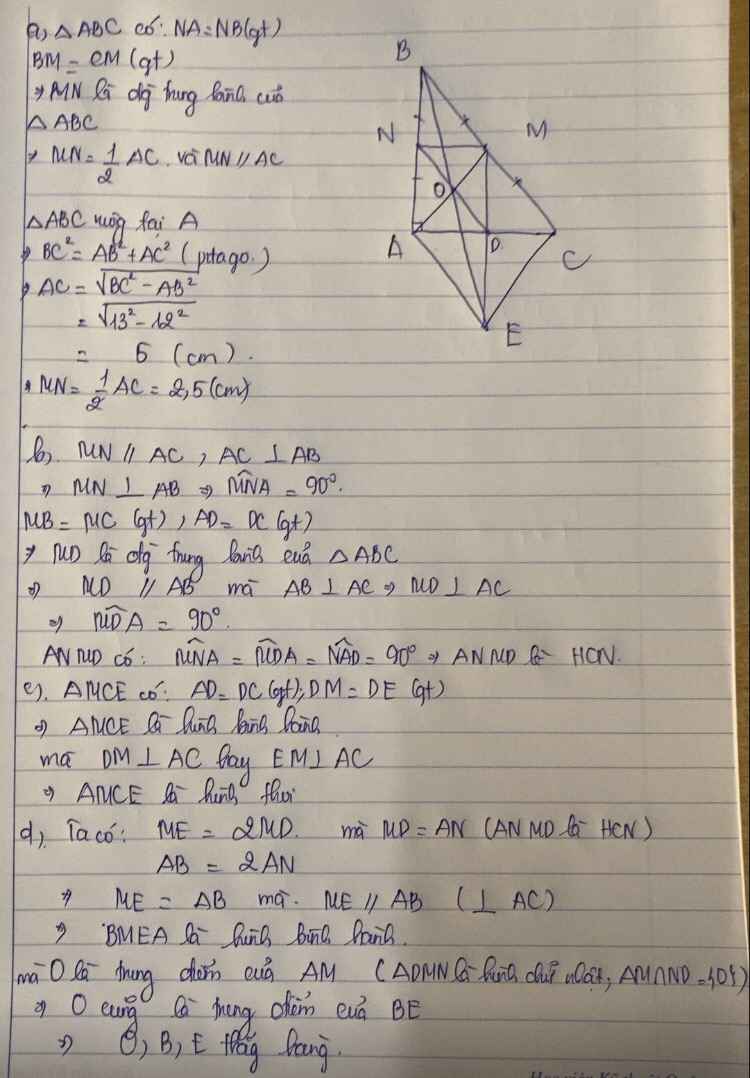 a, △ABC có: NA = NB (gt)
BM = CM (gt)
⇒ MN là đg̃ trung bình của
△ABC
⇒ MN = 1/2 AC và MN // AC
△ABC vuông tại A
⇒ BC² = AB² + AC² (pitago.)
⇒ AC = √(BC² - AB²)
= √(13² - 12²)
= 5 (cm).
⇒ MN = 1/2 AC = 2,5 (cm)
B
N
M
O
A
D
C
E
b, MN // AC, AC ⊥ AB
⇒ MN ⊥ AB ⇒ M̂NA = 90°.
MB = MC (gt), AD = DC (gt)
⇒ MD là đg̃ trung bình của △ABC
⇒ MD // AB mà AB ⊥ AC ⇒ MD ⊥ AC
⇒ M̂DA = 90°.
ANMD có: M̂NA = M̂DA = N̂AD = 90° ⇒ ANMD là HCN.
c). AMCE có: AD = DC (gt); DM = DE (gt)
⇒ AMCE là hình bình hành
mà DM ⊥ AC hay EM ⊥ AC
⇒ AMCE là hình thoi
d), Ta có: ME = 2MD. mà MD = AN (ANMD là HCN)
AB = 2AN
⇒ ME = AB mà. ME // AB (⊥ AC)
⇒ BMEA là hình bình hành.
mà O là trung điểm của AM (ADMN là hình chữ nhật, AM∩ND = {O})
⇒ O cũng là trung điểm của BE
⇒ O, B, E thẳg hàng.